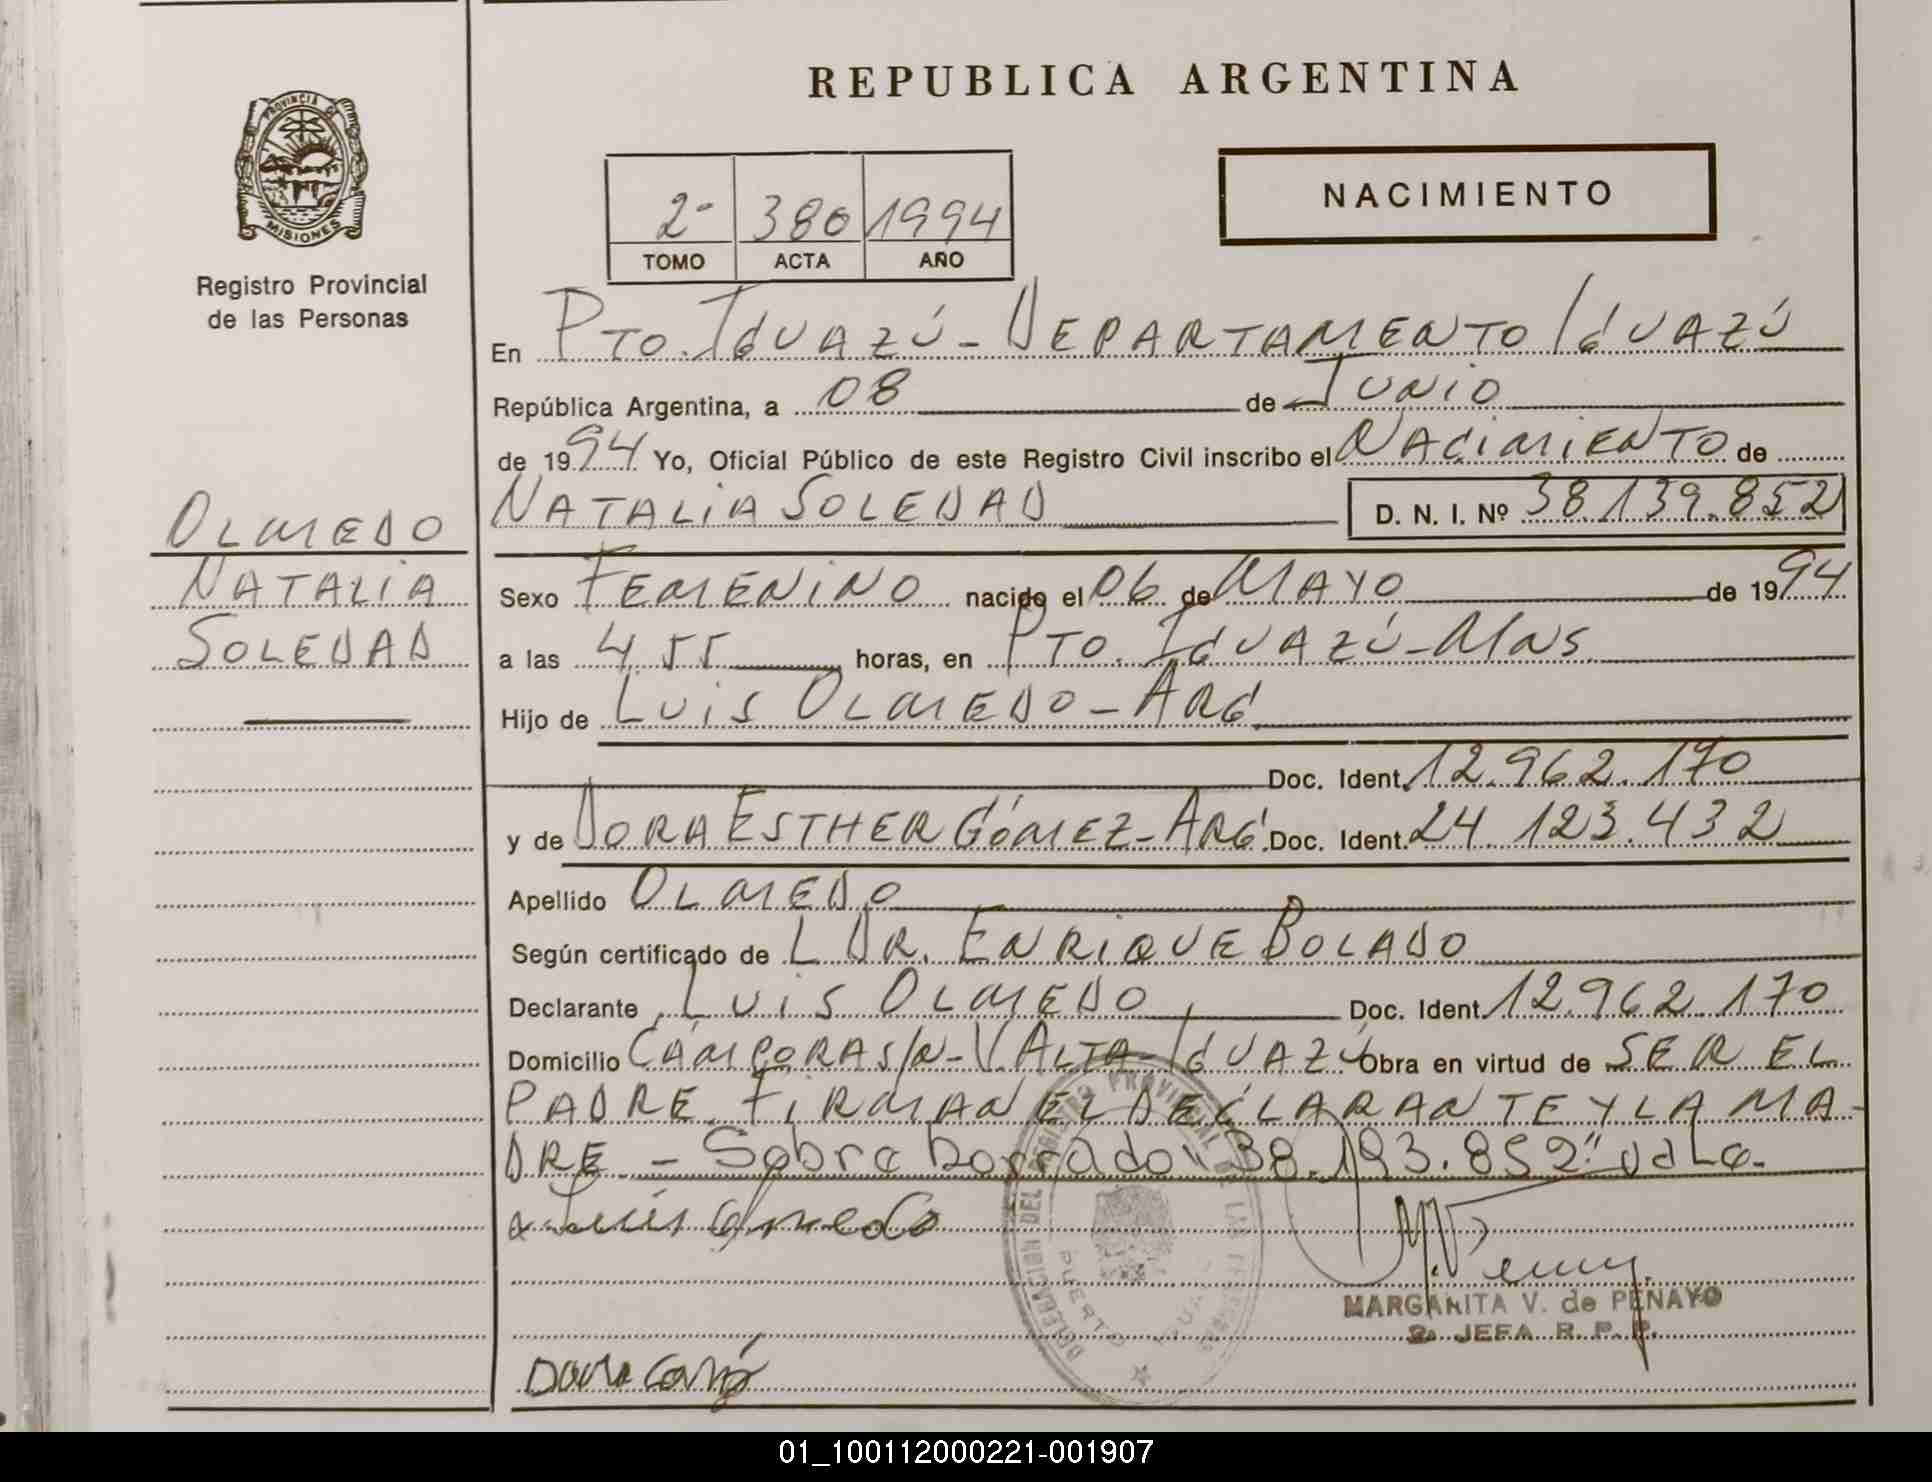 REPUBLICA ARGENTINA
PROVINCIA DE
MISIONES
Registro Provincial
de las Personas
NACIMIENTO
2- 380 1994
TOMO ACTA AÑO
En PTO. IGUAZÚ - DEPARTAMENTO IGUAZÚ
República Argentina, a 08 de JUNIO
de 1994 Yo, Oficial Público de este Registro Civil inscribo el NACIMIENTO de
NATALIA SOLEDAD D. N. I. Nº 38.139.852
OLMEDO
NATALIA
SOLEDAD
Sexo FEMENINO nacido el 06 de MAYO de 1994
a las 4.55 horas, en PTO. IGUAZÚ - MNS
Hijo de LUIS OLMEDO - ARG
Doc. Ident. 12.962.170
y de DORA ESTHER GÓMEZ - ARG. Doc. Ident. 24.123.432
Apellido OLMEDO
Según certificado de L DR. ENRIQUE BOLADO
Declarante LUIS OLMEDO Doc. Ident. 12.962.170
Domicilio CÁMPORA S/N - V. ALTA - IGUAZÚ Obra en virtud de SER EL
PADRE. FIRMAN EL DECLARANTE Y LA MA-
DRE - Sobre borrado "38.193.852" vale.
Luis Olmedo
DELEGACION DEL REGISTRO PROVINCIAL DE LAS PERSONAS
PUERTO IGUAZU
MARGARITA V. de PENAYO
2a. JEFA R. P. P.
01_100112000221-001907